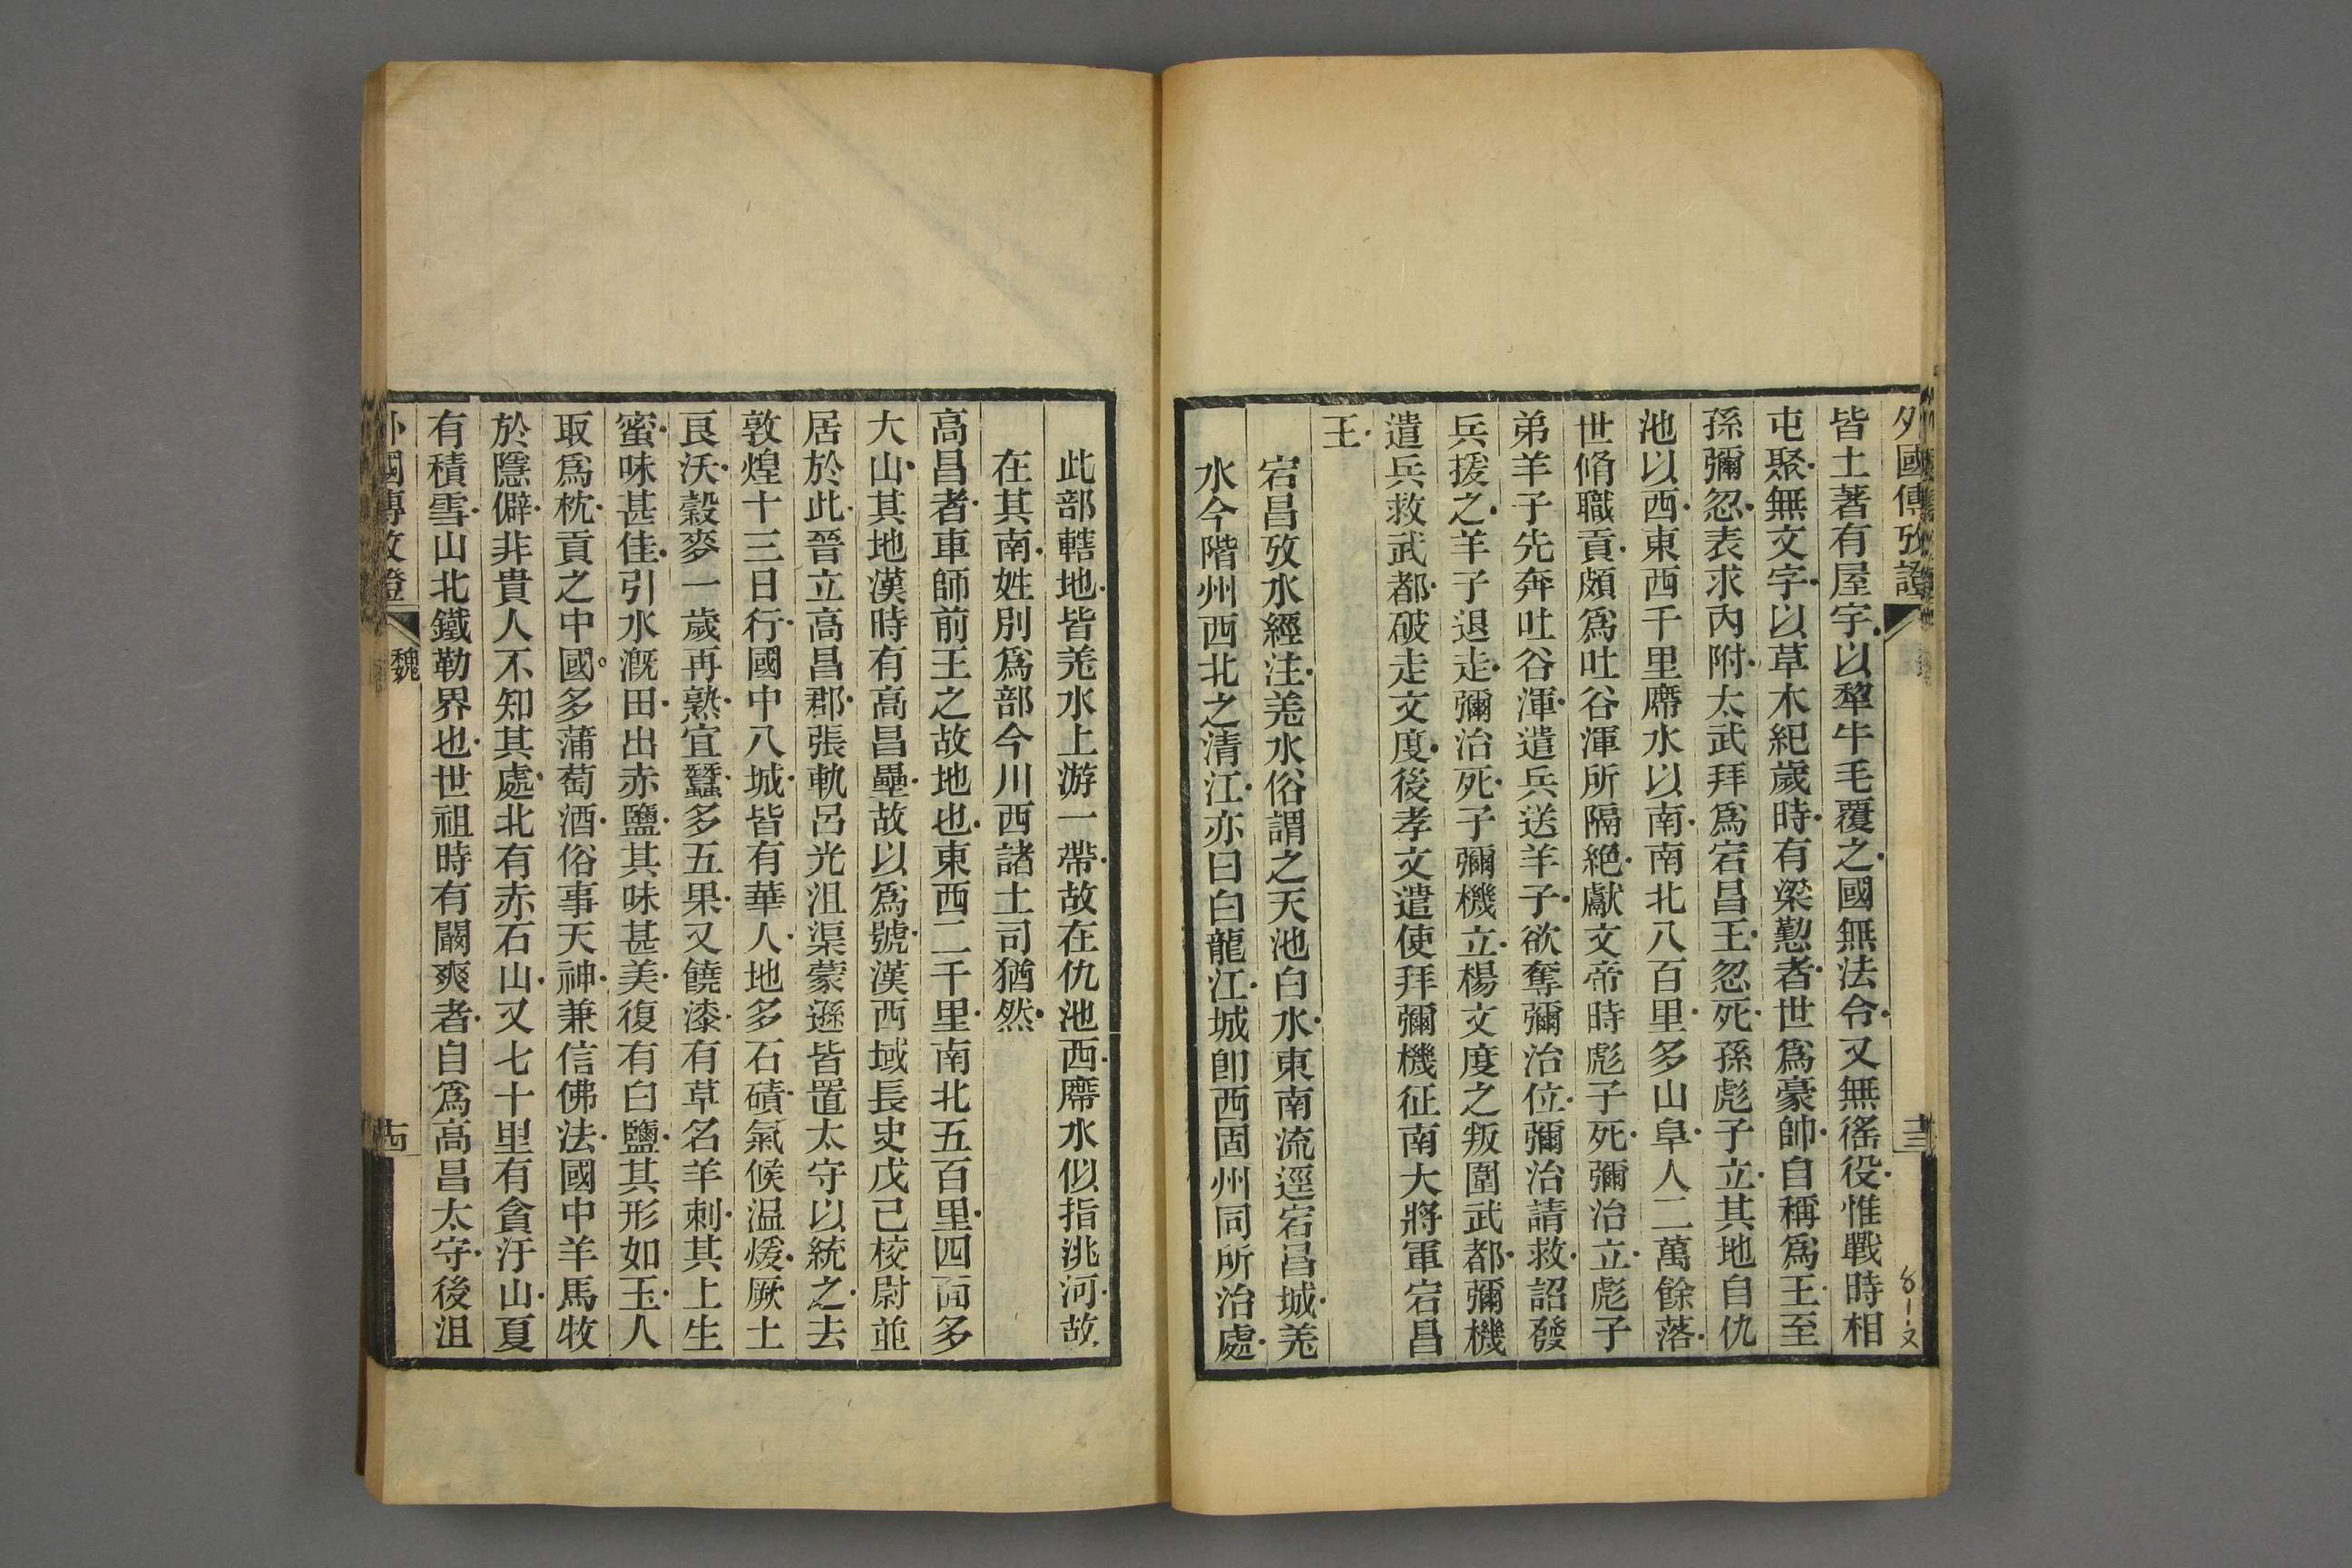 外國傳攷證
十三
皆土著有屋宇以犂牛毛覆之國無法令又無徭役惟戰時相
屯聚無文字以草木紀歲時有梁懃者世爲豪帥自稱爲王至
孫彌忽表求內附太武拜爲宕昌王忽死孫彪子立其地自仇
池以西東西千里席水以南南北八百里多山阜人二萬餘落
世脩職貢頗爲吐谷渾所隔絶獻文帝時彪子死彌治立彪子
弟羊子先奔吐谷渾遣兵送羊子欲奪彌治位彌治請救詔發
兵援之羊子退走彌治死子彌機立楊文度之叛圍武都彌機
遣兵救武都破走文度後孝文遣使拜彌機征南大將軍宕昌
王
宕昌攷水經注羌水俗謂之天池白水東南流逕宕昌城羌
水今階州西北之清江亦曰白龍江城卽西固州同所治處
此部轄地皆羌水上游一帶故在仇池西席水似指洮河故
在其南姓別爲部今川西諸土司猶然
高昌者車師前王之故地也東西二千里南北五百里四面多
大山其地漢時有高昌壘故以爲號漢西域長史戊己校尉並
居於此晉立高昌郡張軌呂光沮渠蒙遜皆置太守以統之去
敦煌十三日行國中八城皆有華人地多石磧氣候温煖厥土
良沃穀麥一歲再熟宜蠶多五果又饒漆有草名羊刺其上生
蜜味甚佳引水漑田出赤鹽其味甚美復有白鹽其形如玉人
取爲枕貢之中國多蒲萄酒俗事天神兼信佛法國中羊馬牧
於隱僻非貴人不知其處北有赤石山又七十里有貪汙山夏
有積雪山北鐵勒界也世祖時有闞爽者自爲高昌太守後沮
外國傳攷證
魏
十四